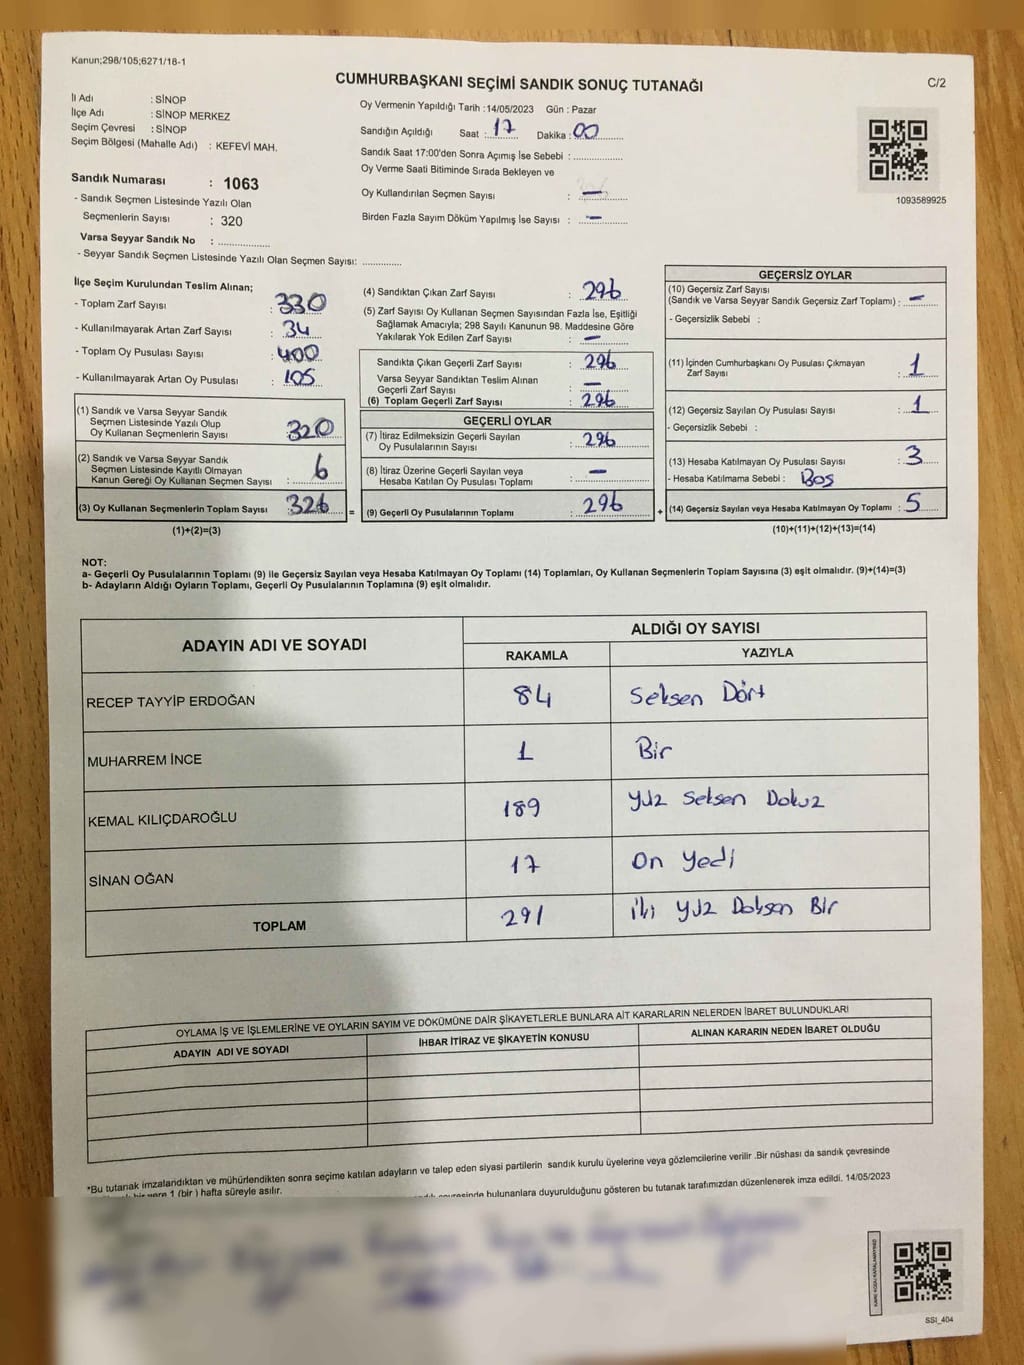 Kanun;298/105;6271/18-1
CUMHURBAŞKANI SEÇİMİ SANDIK SONUÇ TUTANAĞI
C/2
İl Adı : SİNOP
İlçe Adı : SİNOP MERKEZ
Seçim Çevresi : SİNOP
Seçim Bölgesi (Mahalle Adı) : KEFEVİ MAH.
Sandık Numarası : 1063
- Sandık Seçmen Listesinde Yazılı Olan
Seçmenlerin Sayısı : 320
Varsa Seyyar Sandık No : ..................
- Seyyar Sandık Seçmen Listesinde Yazılı Olan Seçmen Sayısı: .............
Oy Vermenin Yapıldığı Tarih :14/05/2023 Gün : Pazar
Sandığın Açıldığı Saat : 17 Dakika : 00
Sandık Saat 17:00'den Sonra Açımış İse Sebebi : ................
Oy Verme Saati Bitiminde Sırada Bekleyen ve
Oy Kullandırılan Seçmen Sayısı : —
Birden Fazla Sayım Döküm Yapılmış İse Sayısı : —
1093589925
İlçe Seçim Kurulundan Teslim Alınan;
- Toplam Zarf Sayısı : 330
- Kullanılmayarak Artan Zarf Sayısı : 34
- Toplam Oy Pusulası Sayısı : 400
- Kullanılmayarak Artan Oy Pusulası : 105
(1) Sandık ve Varsa Seyyar Sandık
Seçmen Listesinde Yazılı Olup
Oy Kullanan Seçmenlerin Sayısı : 320
(2) Sandık ve Varsa Seyyar Sandık
Seçmen Listesinde Kayıtlı Olmayan
Kanun Gereği Oy Kullanan Seçmen Sayısı : 6
(3) Oy Kullanan Seçmenlerin Toplam Sayısı : 326
(1)+(2)=(3)
(4) Sandıktan Çıkan Zarf Sayısı : 296
(5) Zarf Sayısı Oy Kullanan Seçmen Sayısından Fazla İse, Eşitliği
Sağlamak Amacıyla; 298 Sayılı Kanunun 98. Maddesine Göre
Yakılarak Yok Edilen Zarf Sayısı : —
Sandıkta Çıkan Geçerli Zarf Sayısı : 296
Varsa Seyyar Sandıktan Teslim Alınan
Geçerli Zarf Sayısı : —
(6) Toplam Geçerli Zarf Sayısı : 296
GEÇERLİ OYLAR
(7) İtiraz Edilmeksizin Geçerli Sayılan
Oy Pusulasının Sayısı : 296
(8) İtiraz Üzerine Geçerli Sayılan veya
Hesaba Katılan Oy Pusulası Toplamı : —
= (9) Geçerli Oy Pusulalarının Toplamı : 296
GEÇERSİZ OYLAR
(10) Geçersiz Zarf Sayısı
(Sandık ve Varsa Seyyar Sandık Geçersiz Zarf Toplamı) : —
- Geçersizlik Sebebi :
(11) İçinden Cumhurbaşkanı Oy Pusulası Çıkmayan
Zarf Sayısı : 1
(12) Geçersiz Sayılan Oy Pusulası Sayısı : 1
- Geçersizlik Sebebi :
(13) Hesaba Katılmayan Oy Pusulası Sayısı : 3
- Hesaba Katılmama Sebebi : Boş
+ (14) Geçersiz Sayılan veya Hesaba Katılmayan Oy Toplamı : 5
(10)+(11)+(12)+(13)=(14)
NOT:
a- Geçerli Oy Pusulalarının Toplamı (9) ile Geçersiz Sayılan veya Hesaba Katılmayan Oy Toplamı (14) Toplamları, Oy Kullanan Seçmenlerin Toplam Sayısına (3) eşit olmalıdır. (9)+(14)=(3)
b- Adayların Aldığı Oyların Toplamı, Geçerli Oy Pusulalarının Toplamına (9) eşit olmalıdır.
ADAYIN ADI VE SOYADI
ALDIĞI OY SAYISI
RAKAMLA YAZIYLA
RECEP TAYYİP ERDOĞAN 84 Seksen Dört
MUHARREM İNCE 1 Bir
KEMAL KILIÇDAROĞLU 189 Yüz Seksen Dokuz
SİNAN OĞAN 17 On Yedi
TOPLAM 291 iki yüz Doksan Bir
OYLAMA İŞ VE İŞLEMLERİNE VE OYLARIN SAYIM VE DÖKÜMÜNE DAİR ŞİKAYETLERLE BUNLARA AİT KARARLARIN NELERDEN İBARET BULUNDUKLARI
ADAYIN ADI VE SOYADI İHBAR İTİRAZ VE ŞİKAYETİN KONUSU ALINAN KARARIN NEDEN İBARET OLDUĞU
*Bu tutanak imzalandıktan ve mühürlendikten sonra seçime katılan adayların ve talep eden siyasi partilerin sandık kurulu üyelerine veya gözlemcilerine verilir .Bir nüshası da sandık çevresinde
1 (bir ) hafta süreyle asılır.
bulunanlara duyurulduğunu gösteren bu tutanak tarafımızdan düzenlenerek imza edildi. 14/05/2023
SSİ_404